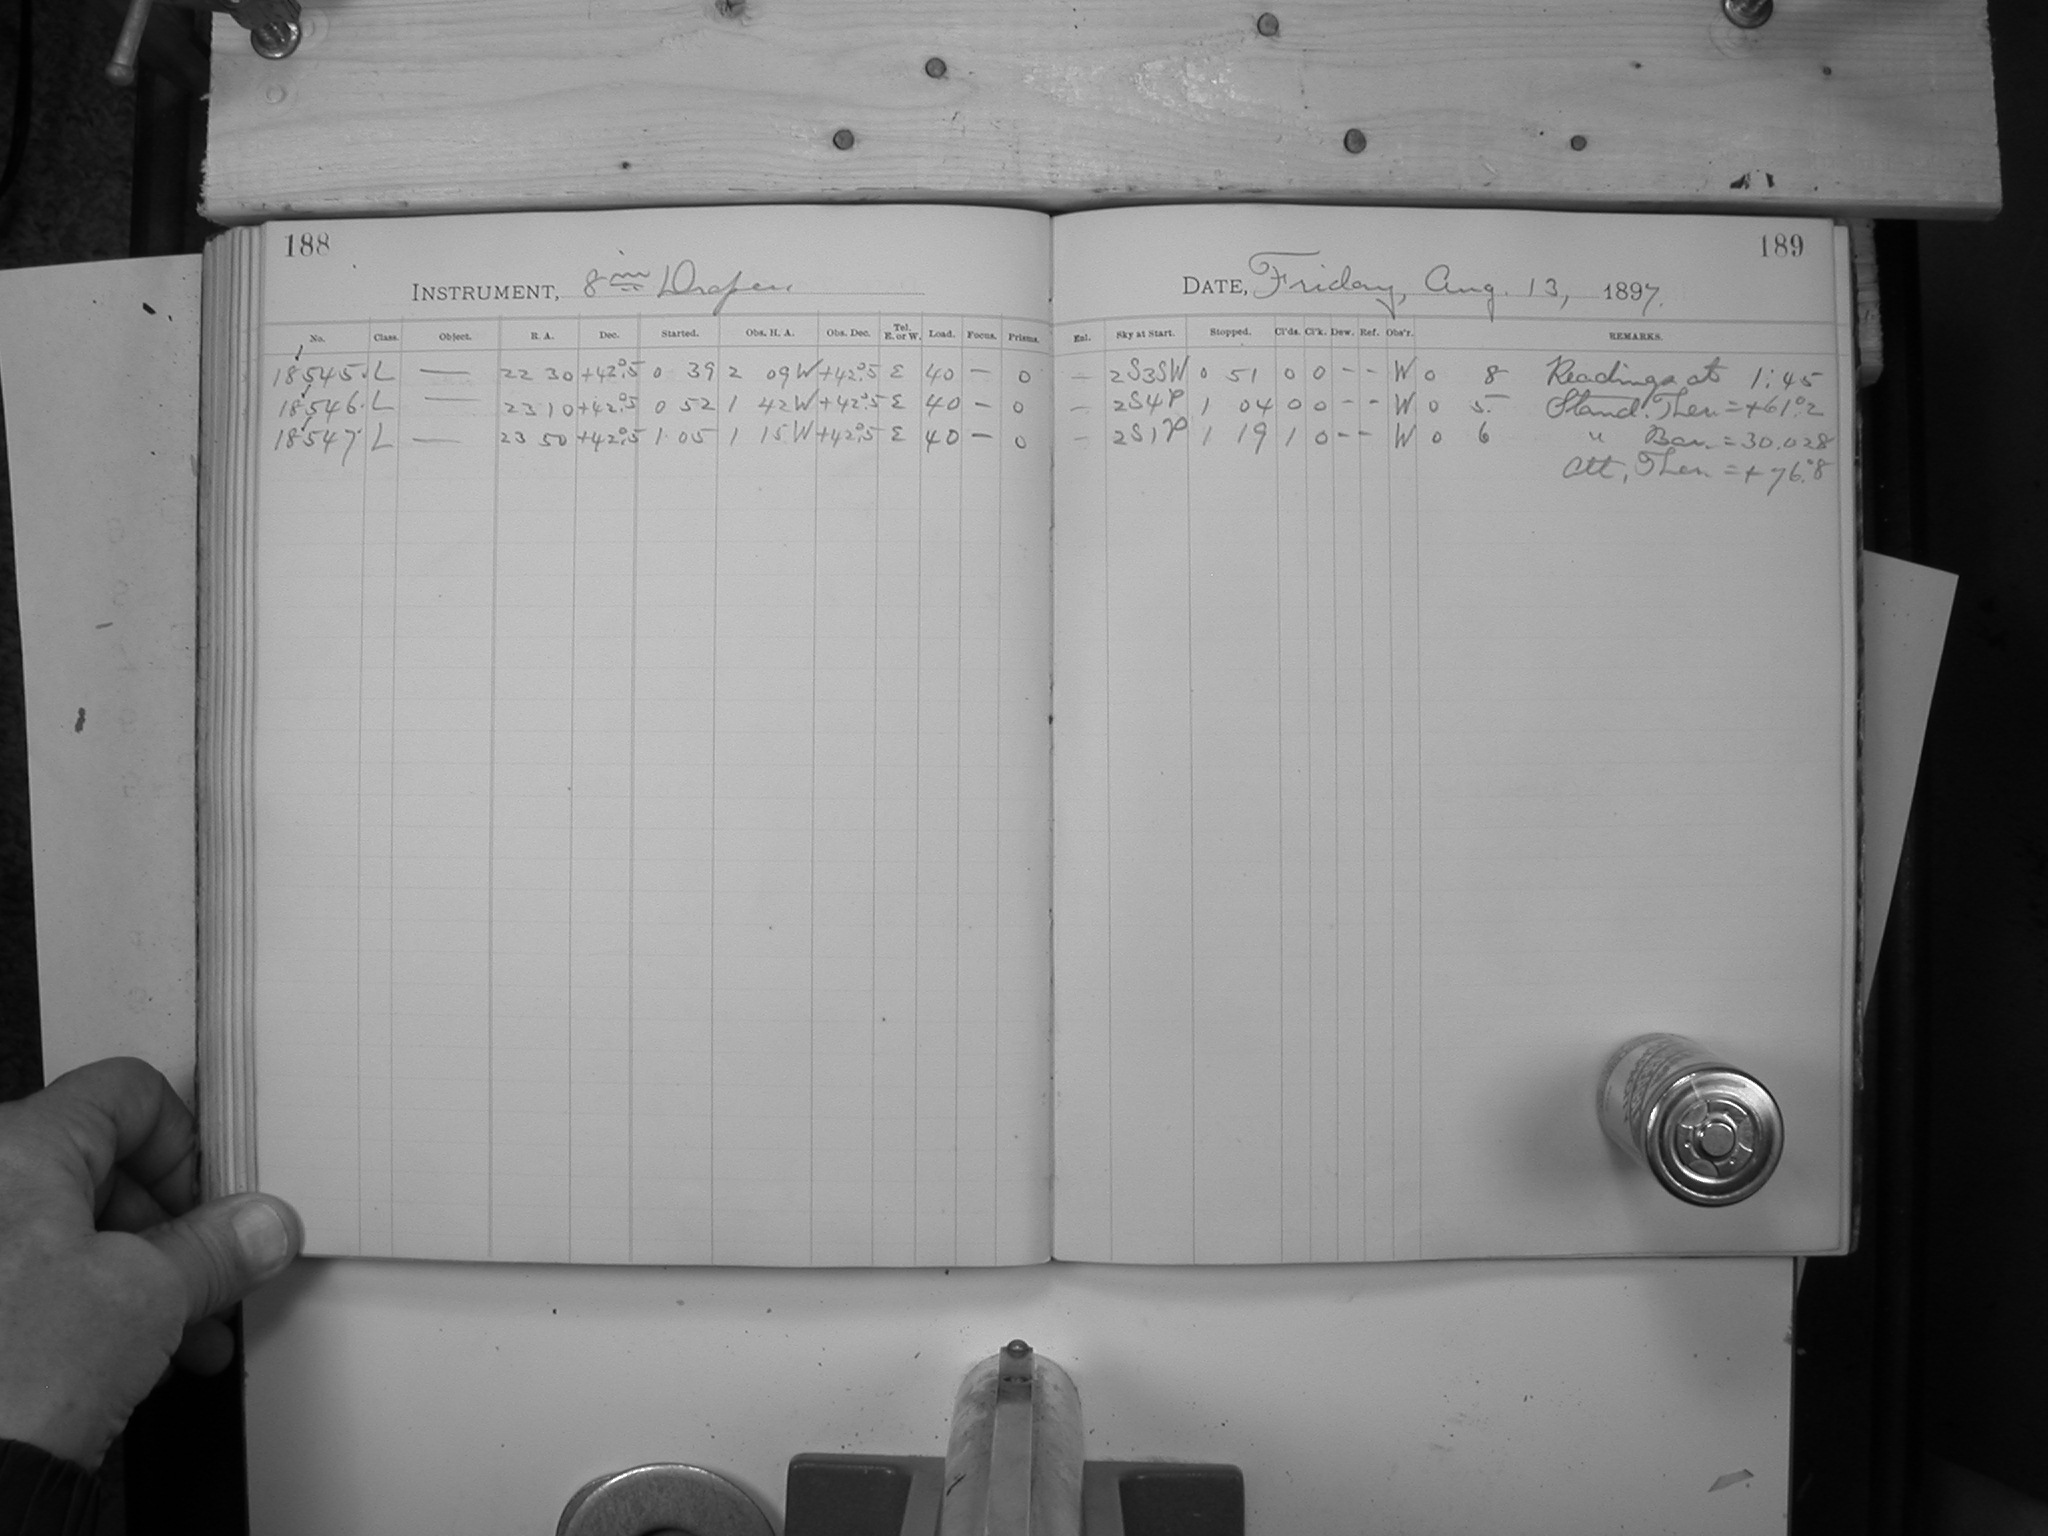 188
INSTRUMENT, 8 in Draper
No. Class. Object. R. A. Dec. Started. Obs. H. A. Obs. Dec. Tel. E. or W. Load. Focus. Prisms.
18545. L — 22 30 +42°.5 0 39 2 09 W +42°.5 E 40 — 0
18546. L — 23 10 +42°.5 0 52 1 42 W +42°.5 E 40 — 0
18547. L — 23 50 +42°.5 1 05 1 15 W +42°.5 E 40 — 0
189
DATE, Friday, Aug. 13, 1897.
Enl. Sky at Start. Stopped. Cl'ds. Cl'k. Dew. Ref. Obs'r. REMARKS.
— 2S3SW 0 51 0 0 - - W 0 8 Readings at 1:45
— 2S4P 1 04 0 0 - - W 0 5 Stand. Ther. = +61°.2
— 2S1P 1 19 1 0 - - W 0 6 " Bar. = 30.028
Att. Ther. = +76°.8